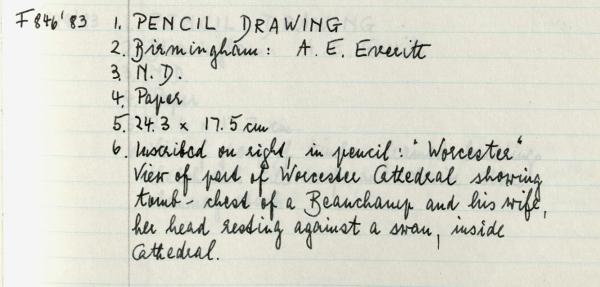 F846'83 1. PENCIL DRAWING
2. Birmingham: A. E. Everitt
3. N. D.
4. Paper
5. 24.3 x 17.5 cm
6. Inscribed on right, in pencil: "Worcester"
View of part of Worcester Cathedral showing
tomb-chest of a Beauchamp and his wife,
her head resting against a swan, inside
Cathedral.